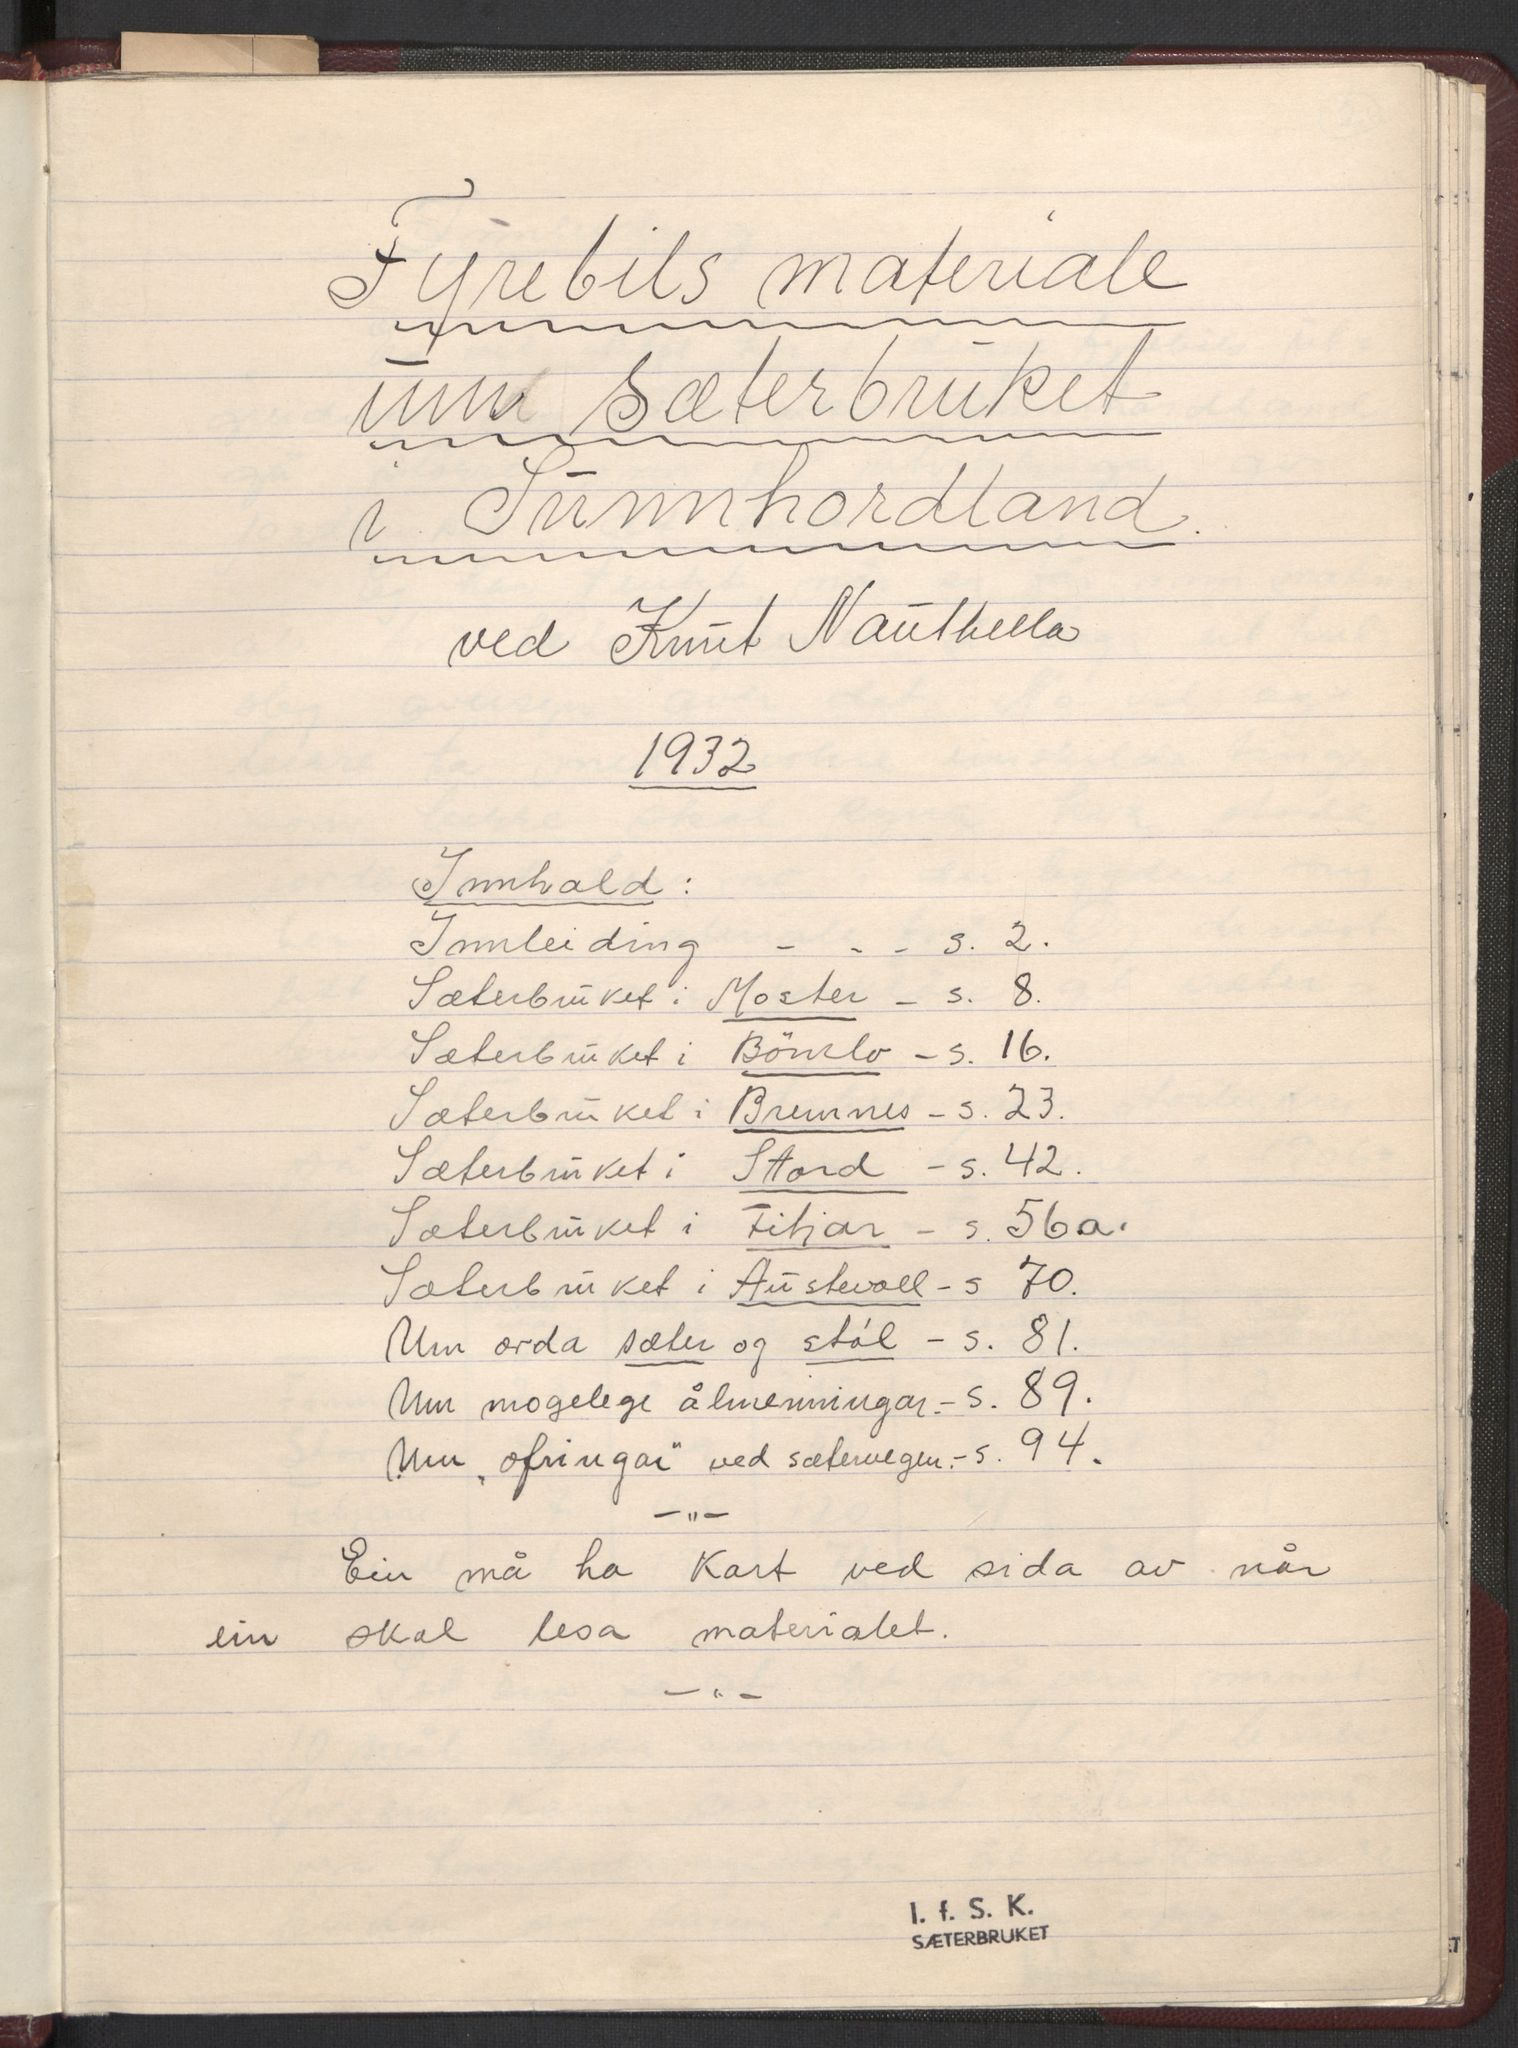 Fyrebils materiale
um sæterbruket
i Sunnhordland.
ved Knut Nauthella
1932
Innhald:
Innleiding - - - s. 2.
Sæterbruket i Moster - s. 8.
Sæterbruket i Bömlo - s. 16.
Sæterbruket i Bremnes - s. 23.
Sæterbruket i Stord - s. 42.
Sæterbruket i Fitjar - s. 56a.
Sæterbruket i Austevoll - s 70.
Um orda sæter og støl - s. 81.
Um mogelege ålmenningar. - s. 89.
Um „ofringar" ved sætervegen. - s. 94.
—"—
Ein må ha kart ved sida av når
ein skal lesa materialet.
—"—
I. f. S. K.
SÆTERBRUKET